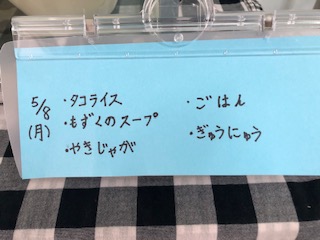 5/8
(月)
・タコライス
・もずくのスープ
・やきじゃが
・ごはん
・ぎゅうにゅう